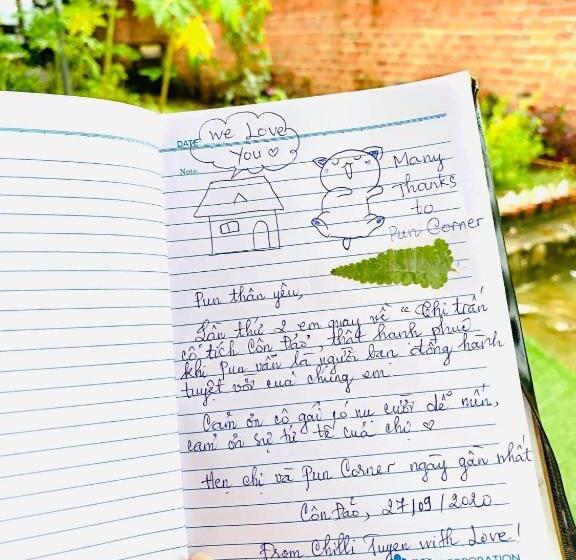 DATE
Note
we Love
You ♡
Many
Thanks
to
Pun Corner
Pun thân yêu,
Lần thứ 2 em quay về "Thị trấn
cổ tích Côn Đảo", thật hạnh phúc
khi Pun vẫn là người bạn đồng hành
tuyệt vời của chúng em.
Cảm ơn cô gái có nụ cười dễ mến,
cảm ơn sự tử tế của chị ♡
Hẹn chị và Pun Corner ngày gần nhất
Côn Đảo, 27/09/2020
From Chilli Tuyen with Love!
CORPORATION